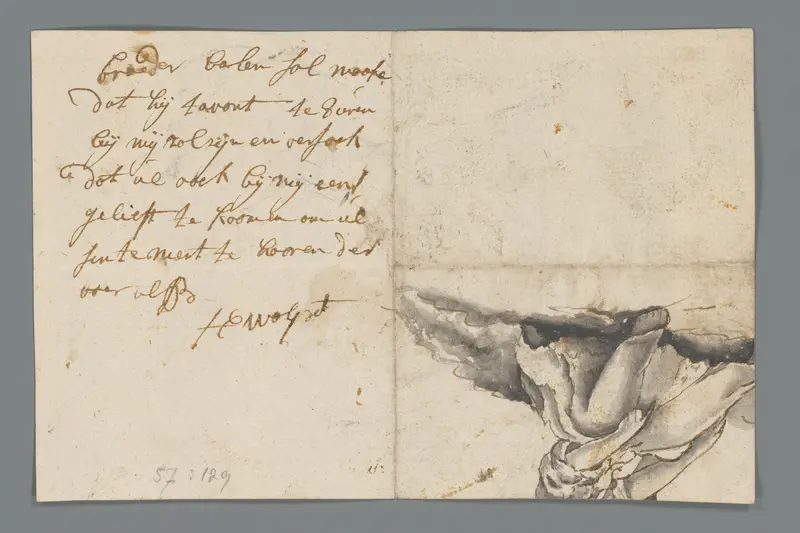 broeder balen sal
dat hij tavont te 8 uren
bij mij zol zijn en versoek
dat ul oock bij mij eens
gelieft te koomen om ul
sentement te hooren der
over
57:129